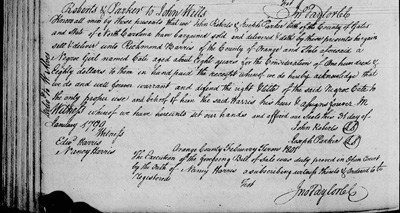 Roberts & Parker to John Wells Test Jno Taylor CC
Know all men by these presents that we John Roberts & Joseph Parker both of the County of Gates
and State of North Carolina have bargained sold and delivered & doth by these presents bargain
sell & deliver unto Richmond Harris of the County of Orange and State aforesaid a
Negroe Girl named Cate aged about Eight years for the Consideration of One hundred &
Eighty dollars to them in hand paid the receipt whereof we do hereby acknowledge that
we do and well forever warrant and defend the right & title of the said Negroe Cate to
the only proper use and behoof of him the said Harris his heirs & assigns forever In
Witness whereof we have hereunto set our hands and affixed our Seals this day of
January 1799 John Roberts
Witness Joseph Parker
Edw Harris
Nancy Harris Orange County February Term 1800
The Execution of the foregoing Bill of Sale was duly proved in Open Court
by the Oath of Nancy Harris a subscribing witness thereto & Ordered to be
Registered Test
Jno Taylor CC